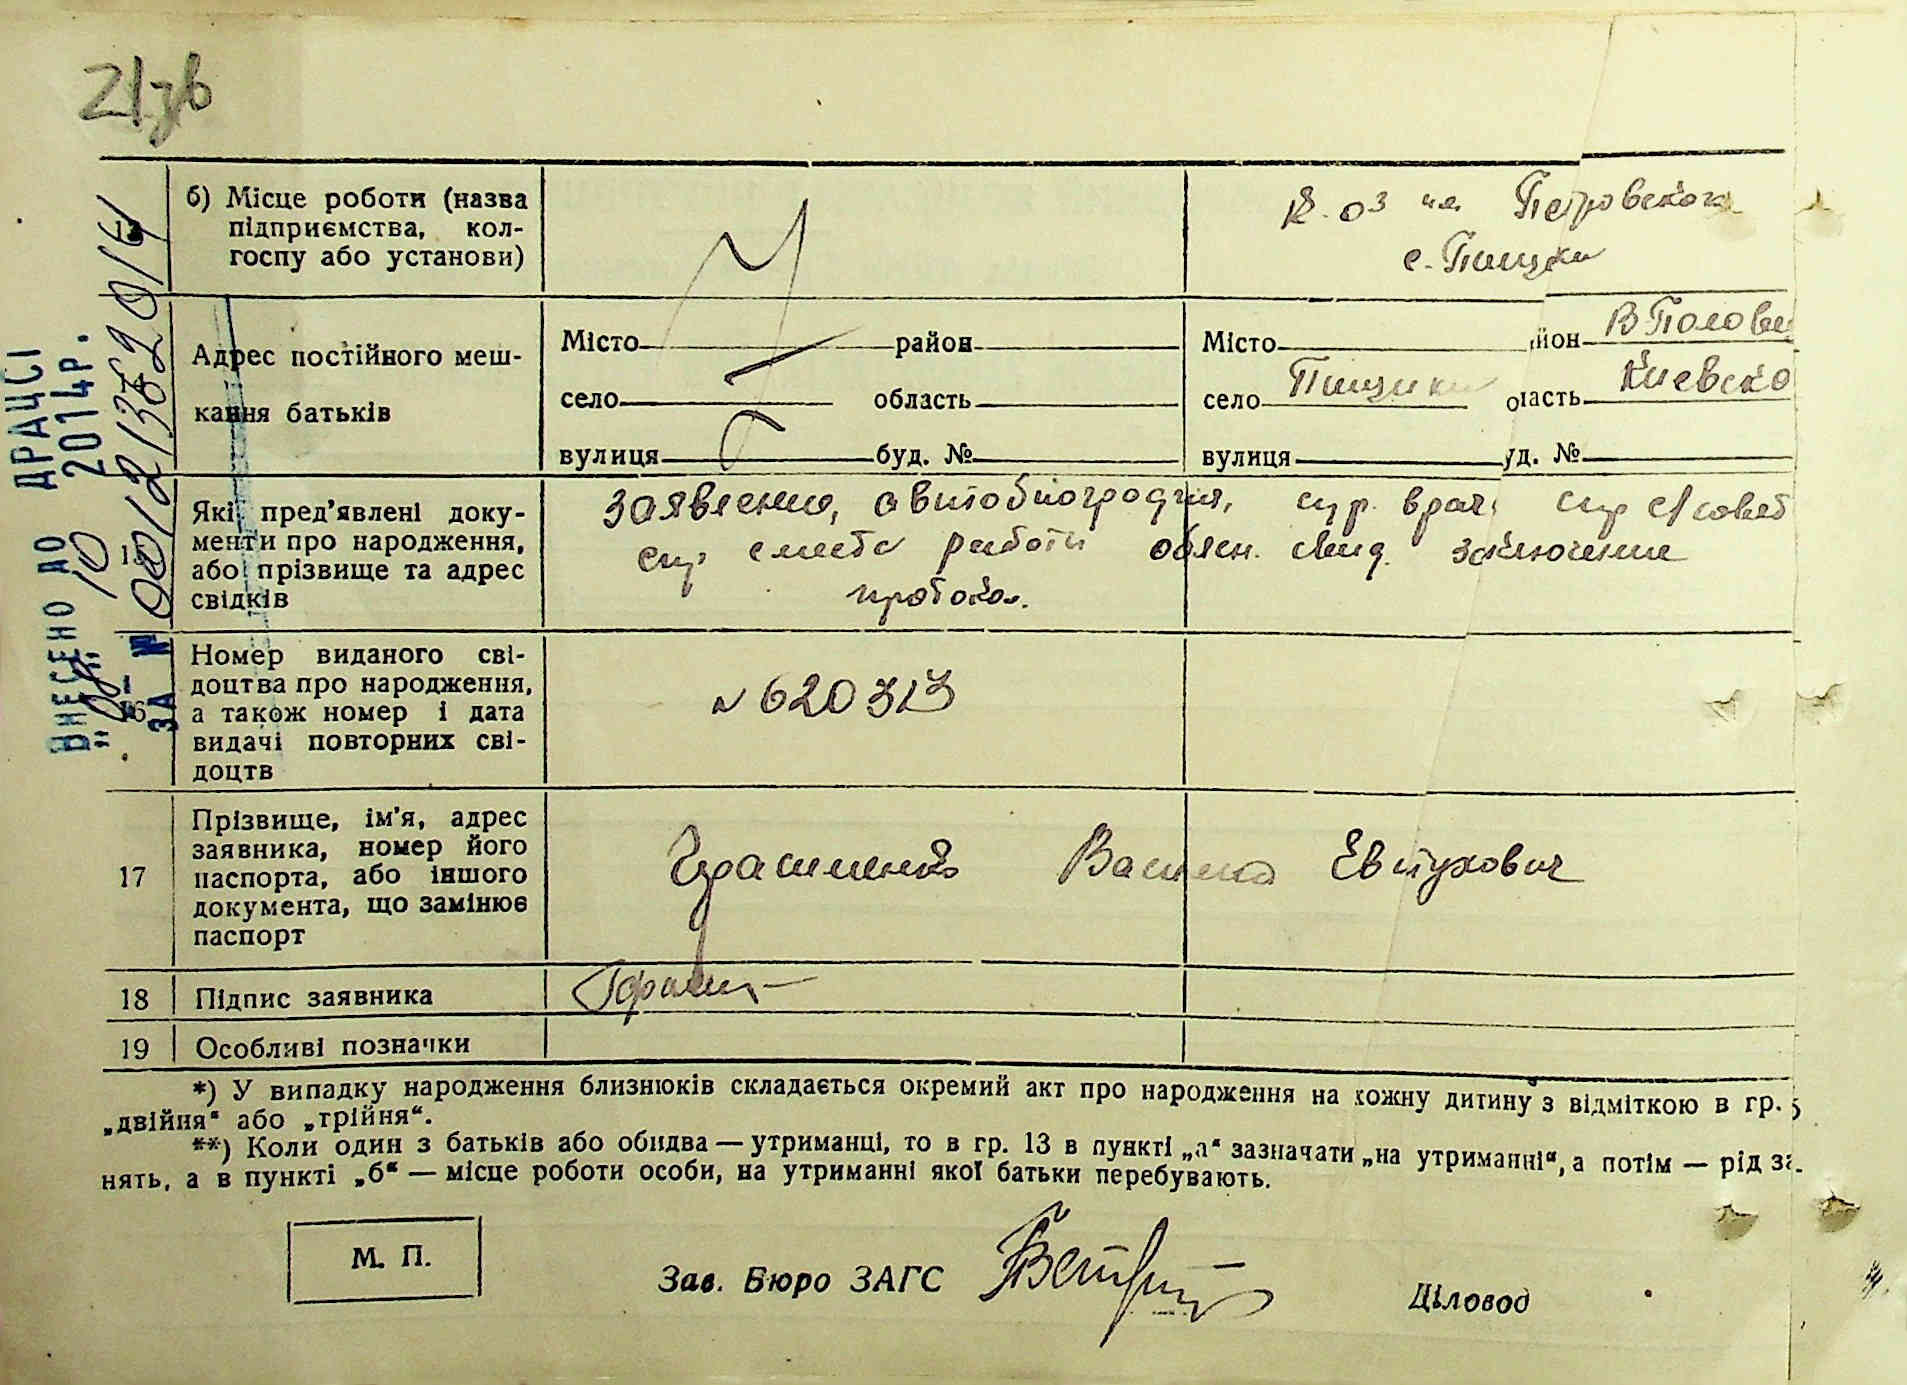 21зв
б) Місце роботи (назва
підприємства, кол-
госпу або установи)
К-оз им Петровского
с. Пищики
Адрес постійного меш-
кання батьків
Місто район Місто йон В Полове
село область село Пищики оласть Киевско
вулиця буд. № вулиця уд. №
Які пред'явлені доку-
менти про народження,
або прізвище та адрес
свідків
заявление, автобиография, спр. врач. спр с/совет
спр с места работы обясн. свид. заключение
протокол.
Номер виданого сві-
доцтва про народження,
а також номер і дата
видачі повторних сві-
доцтв
№ 620313
17
Прізвище, ім'я, адрес
заявника, номер його
паспорта, або іншого
документа, що замінює
паспорт
Василий Евтухович
18 Підпис заявника
19 Особливі позначки
*) У випадку народження близнюків складається окремий акт про народження на кожну дитину з відміткою в гр. 5
„двійня“ або „трійня“.
**) Коли один з батьків або обидва — утриманці, то в гр. 13 в пункті „а“ зазначати „на утриманні“, а потім — рід за-
нять, а в пункті „б“ — місце роботи особи, на утриманні якої батьки перебувають.
М. П.
Зав. Бюро ЗАГС
Діловод
ВНЕСЕНО ДО ДРАЦСІ
10 2014р.
ЗА №